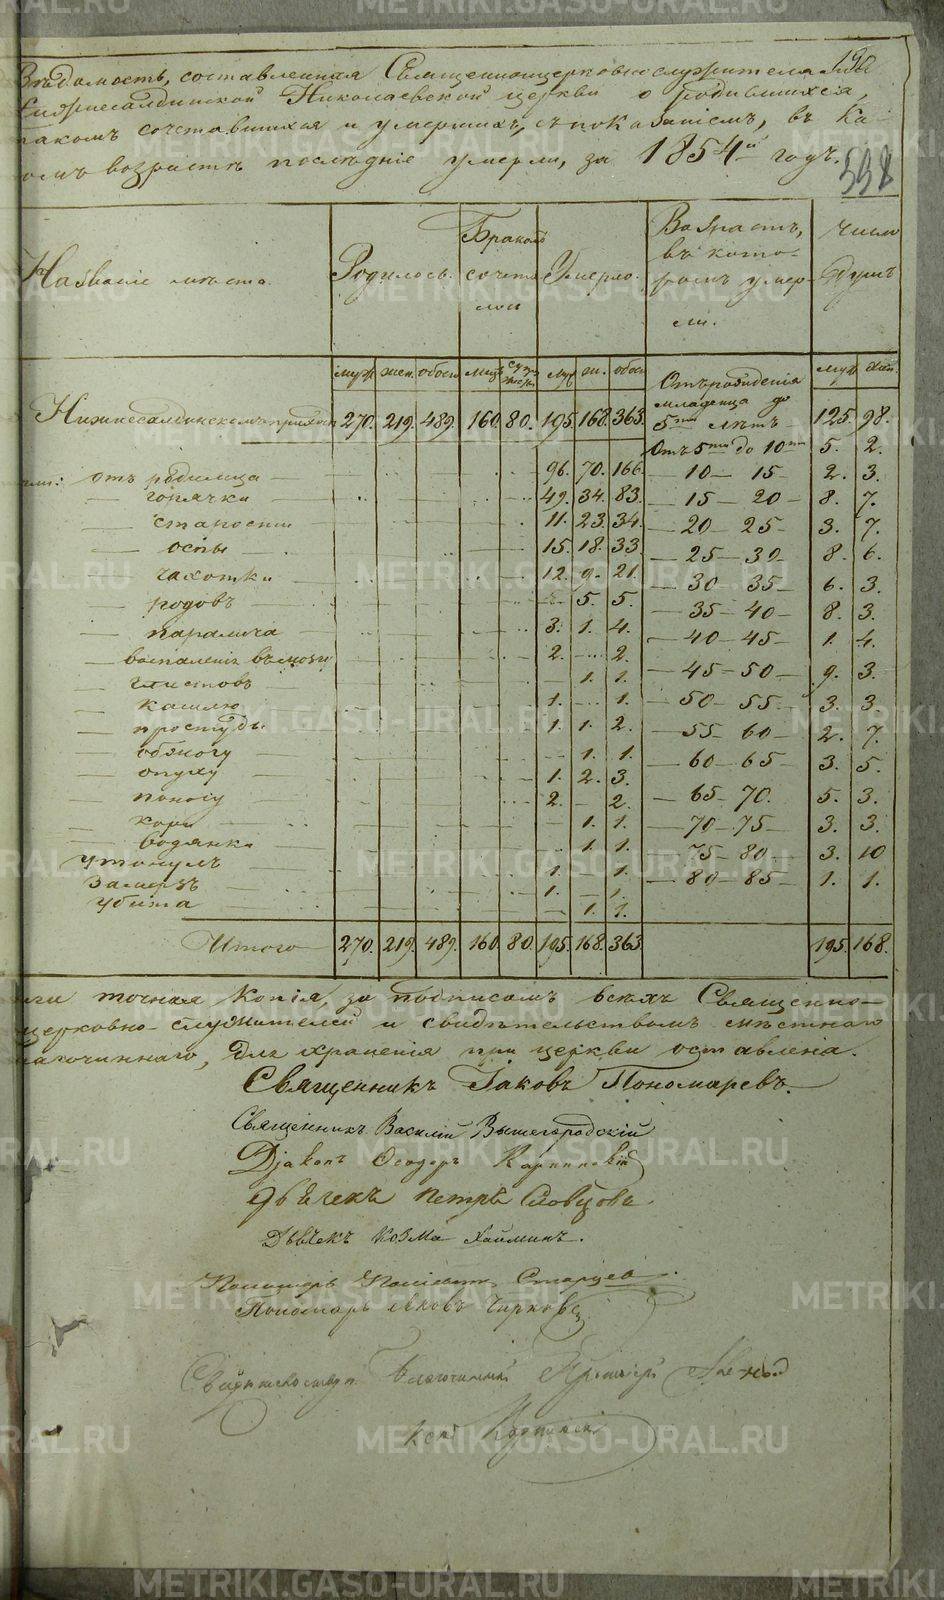 Ведомость, составленная Священноцерковнослужителями
Нижнесалдинской Николаевской церкви о родившихся,
браком сочетавшихся и умерших, съ показаніемъ, въ ка-
комъ возрастѣ последніе умерли, за 1854й годъ.
598
Названіе мѣста.
Родилось.
Бракомъ сочета лось
Умерло.
Возрастъ, въ кото- ромъ умер- ли.
Число душъ
муж. жен. обоего муж. обоего муж. жен. обоего муж. жен.
Нижнесалдинскомъ приходѣ 270. 219. 489. 160. 80. 195. 168. 363. Отъ рожденія младенца до 5ти лѣтъ 125. 98.
Отъ 5ти до 10ти 5. 2.
отъ родимца 96. 70. 166. 10 — 15 2. 3.
горячки 49. 34. 83. 15 20 8. 7.
старости 11. 23. 34. 20 25 3. 7.
оспы 15. 18. 33. 25 — 30 8. 6.
чахотки 12. 9. 21. 30 35 6. 3.
родовъ 5. 5. 35 — 40 8. 3.
паралича 3. 1. 4. 40 45 1. 4.
воспаленія 2. 2. 45 — 50 9. 3.
глистовъ 1. 1. 50 55 3. 3.
кашлю 1. 1. 55 60 2. 7.
простуды 1. 1. 2. 60 65 3. 5.
1. 1.
опуху 1. 2. 3. 65 70. 5. 3.
поносу 2. 2. 70 — 75 3. 3.
кори 1. 1. 75 80. 3. 10
водянки 1. 1. 80 — 85 1. 1.
утонулъ 1. 1.
Замерзъ 1. 1.
Убита 1. 1.
Итого 270. 219. 489. 160. 80. 195. 168. 363. 195. 168.
точная копія, за подписомъ всѣхъ Священно-
церковно-служителей и свидѣтельствомъ мѣстнаго
благочиннаго, для храненія при церкви оставлена.
Священникъ Іаковъ Пономаревъ.
Священникъ Василій Вышегородскій
Діаконъ Ѳеодоръ Карпинскій
Дьячекъ Петръ Словцовъ.
Дьячекъ Козма
Пономарь Старцев.
Пономарь Яковъ Чирковъ
Благочинный
METRIKI.GASO-URAL.RU